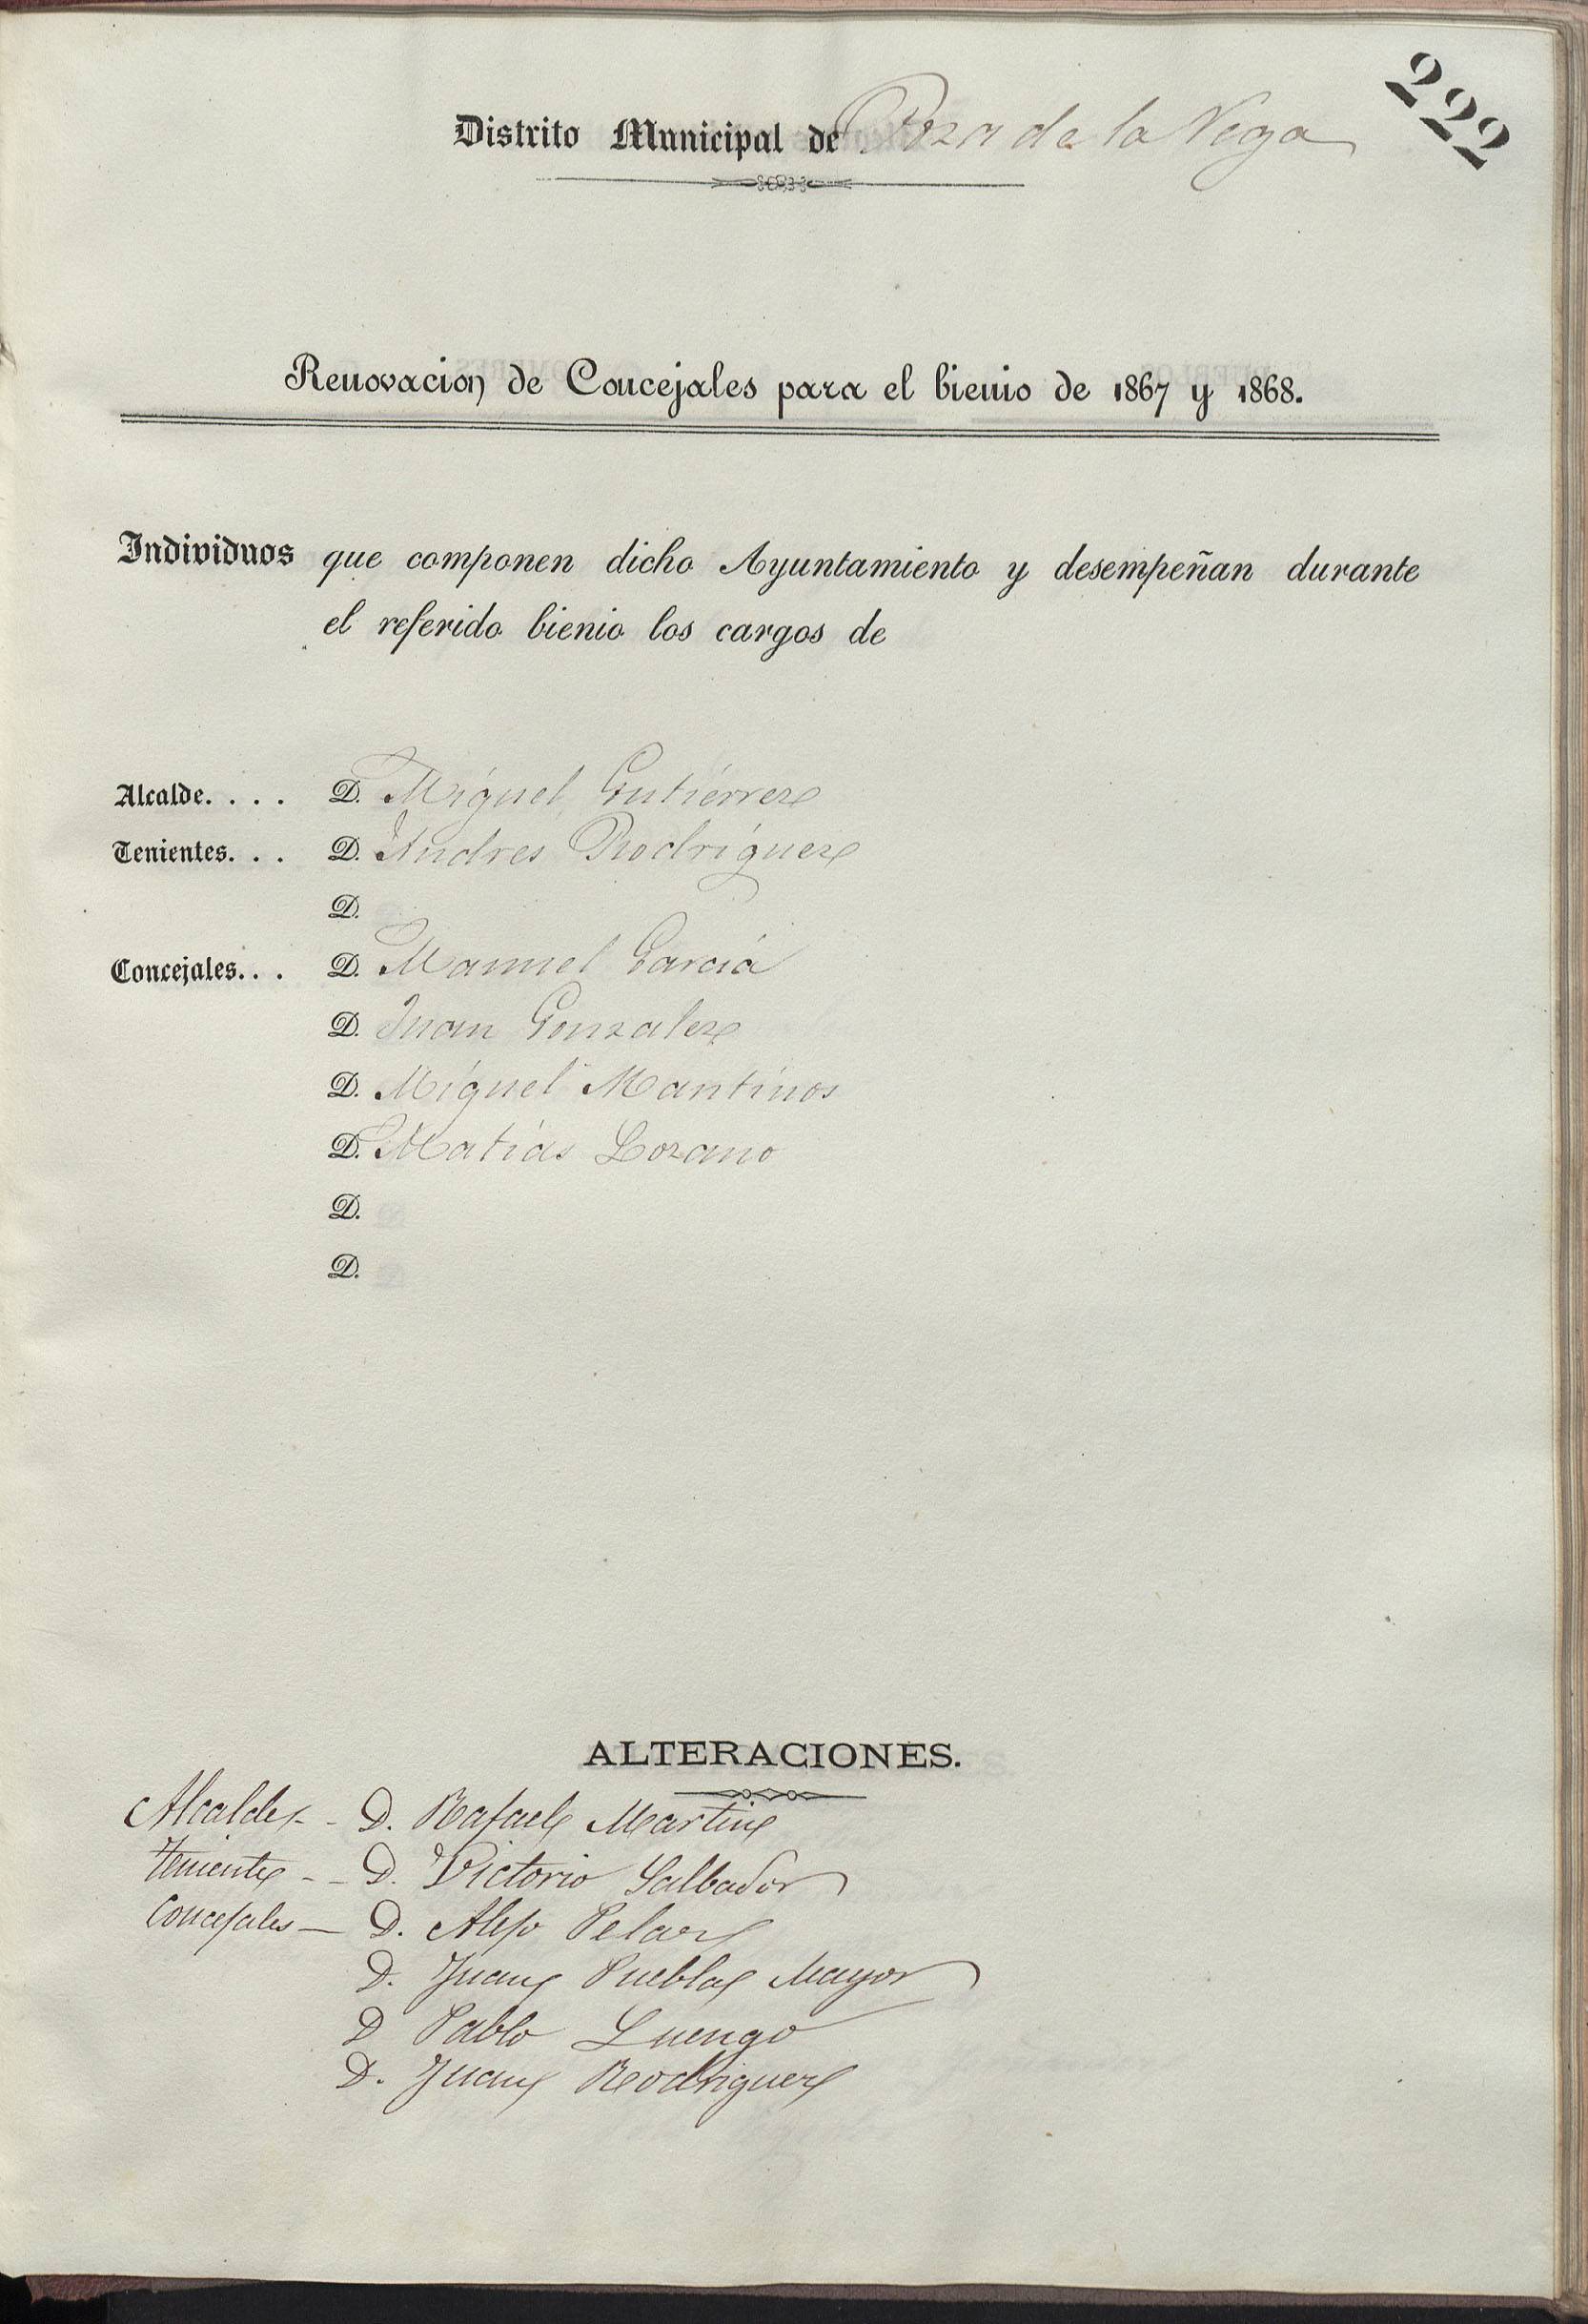 222
Distrito Municipal de Poza de la Vega
Renovacion de Concejales para el bienio de 1867 y 1868.
Individuos que componen dicho Ayuntamiento y desempeñan durante
el referido bienio los cargos de
Alcalde. . . . D. Miguel Gutiérrez
Tenientes. . . D. Andres Rodriguez
D.
Concejales. . . D. Manuel García
D. Juan Gonzalez
D. Miguel Mantinos
D. Matías Lozano
D.
D.
ALTERACIONES.
Alcalde - - D. Rafael Martin
Teniente - - D. Victorio Salbador
Concejales - D. Alejo Pelaez
D. Juan Puebla Mayor
D Pablo Luengo
D. Juan Rodriguez